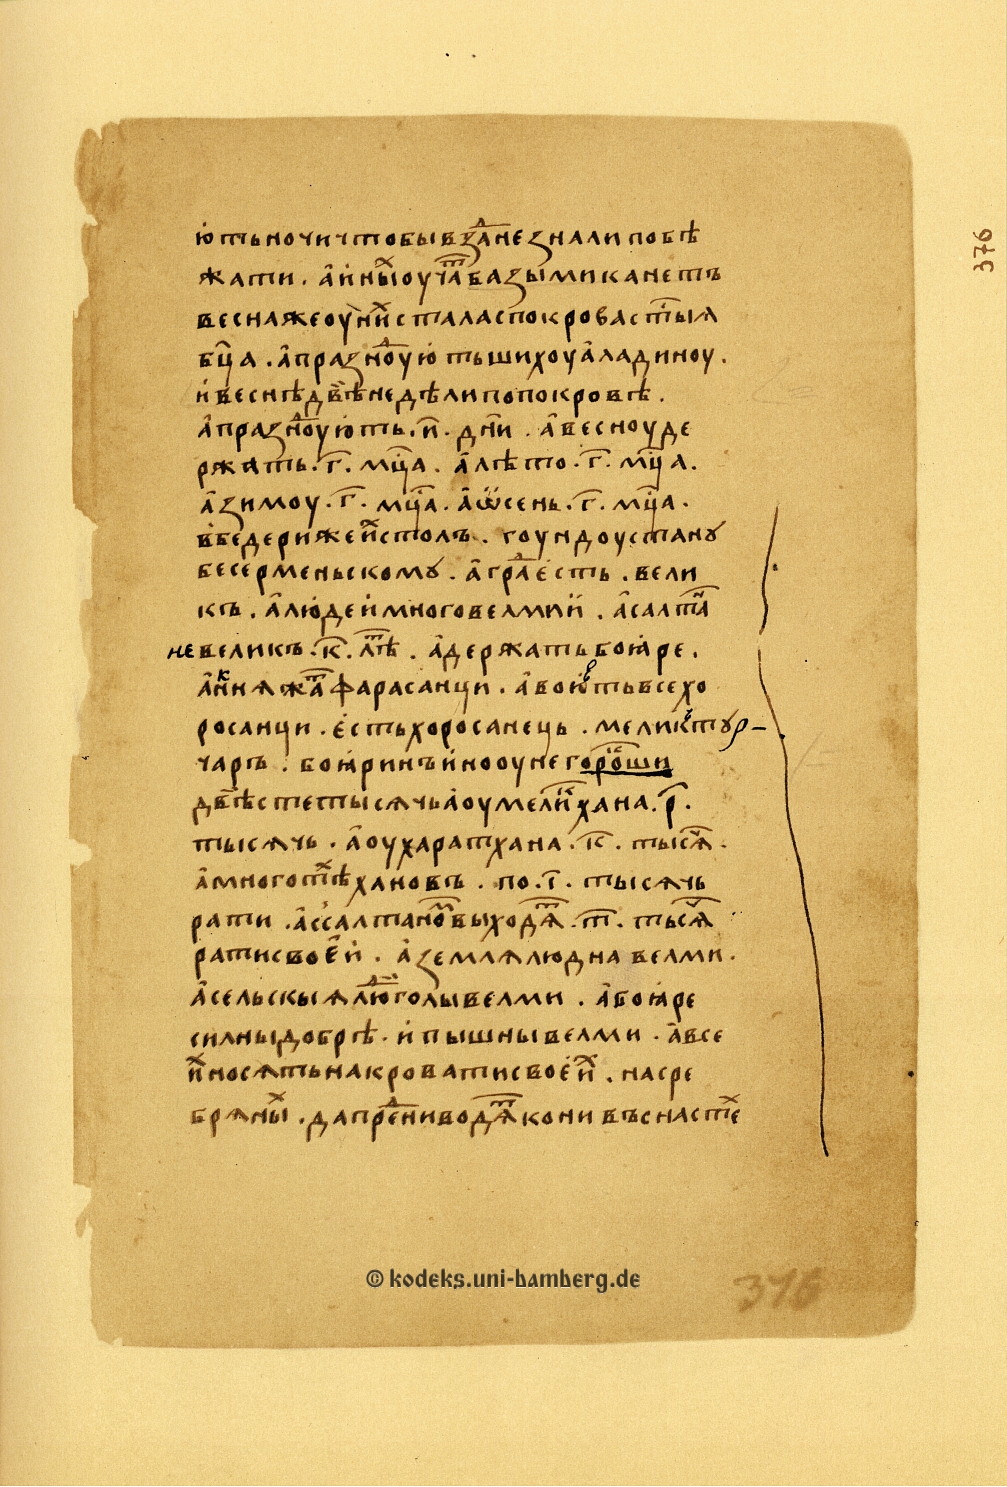 ютьночичтобывзданезналипобѣ
жати. а҆и҆ныхоучатьбазымиканетъ
веснажеоунихсталаспокровастыꙗ
бц҃а. а҆празноую҆тьшихоуа҆ладиноу.
и҆веснѣдвѣнеделипопокровѣ.
а҆празноую҆ть.и҃. дн҃и. а҆весноуде
ржать.г҃. мц҃а. а҆лѣто.г҃. мц҃а.
а҆зимоу.г҃. мц҃а. а҆ѡсень.г҃. мц҃а.
вбедерижеи҆хстолъ. гоундоустанꙋ
бесерменьскомꙋ. а҆граде҆сть. вели
къ. а҆люд҆еи҆многовелмии҆. а҆салтан
невеликъ.к҃. лѣт. а҆держатьбоꙗре.
а҆кнѧжатфарасанци. а҆воюютьвсехо
росанци. е҆стьхоросанець. меликтꙋр-
чаръ. боꙗринъи҆нооунегоратиши
двѣстетысѧчьа҆оумеликхана.р҃.
тысѧчь. а҆оухаратхана.к҃. тысѧч.
а҆многотѣххановъ. по.і҃. тысѧчь
рати. а҆ссалтаномвыходѧт.т҃. тысѧч
ратисвое҆и҆. а҆землѧлюдна велми.
а҆сельскыѧлюдголывелми. а҆боꙗре
силныдобрѣ. и҆пышнывелми. а҆все
и҆хносѧтьнакроватисвое҆и҆х. насре
брѧных. дапредниводѧткони въснастех
© kodeks.uni-bamberg.de
376
376